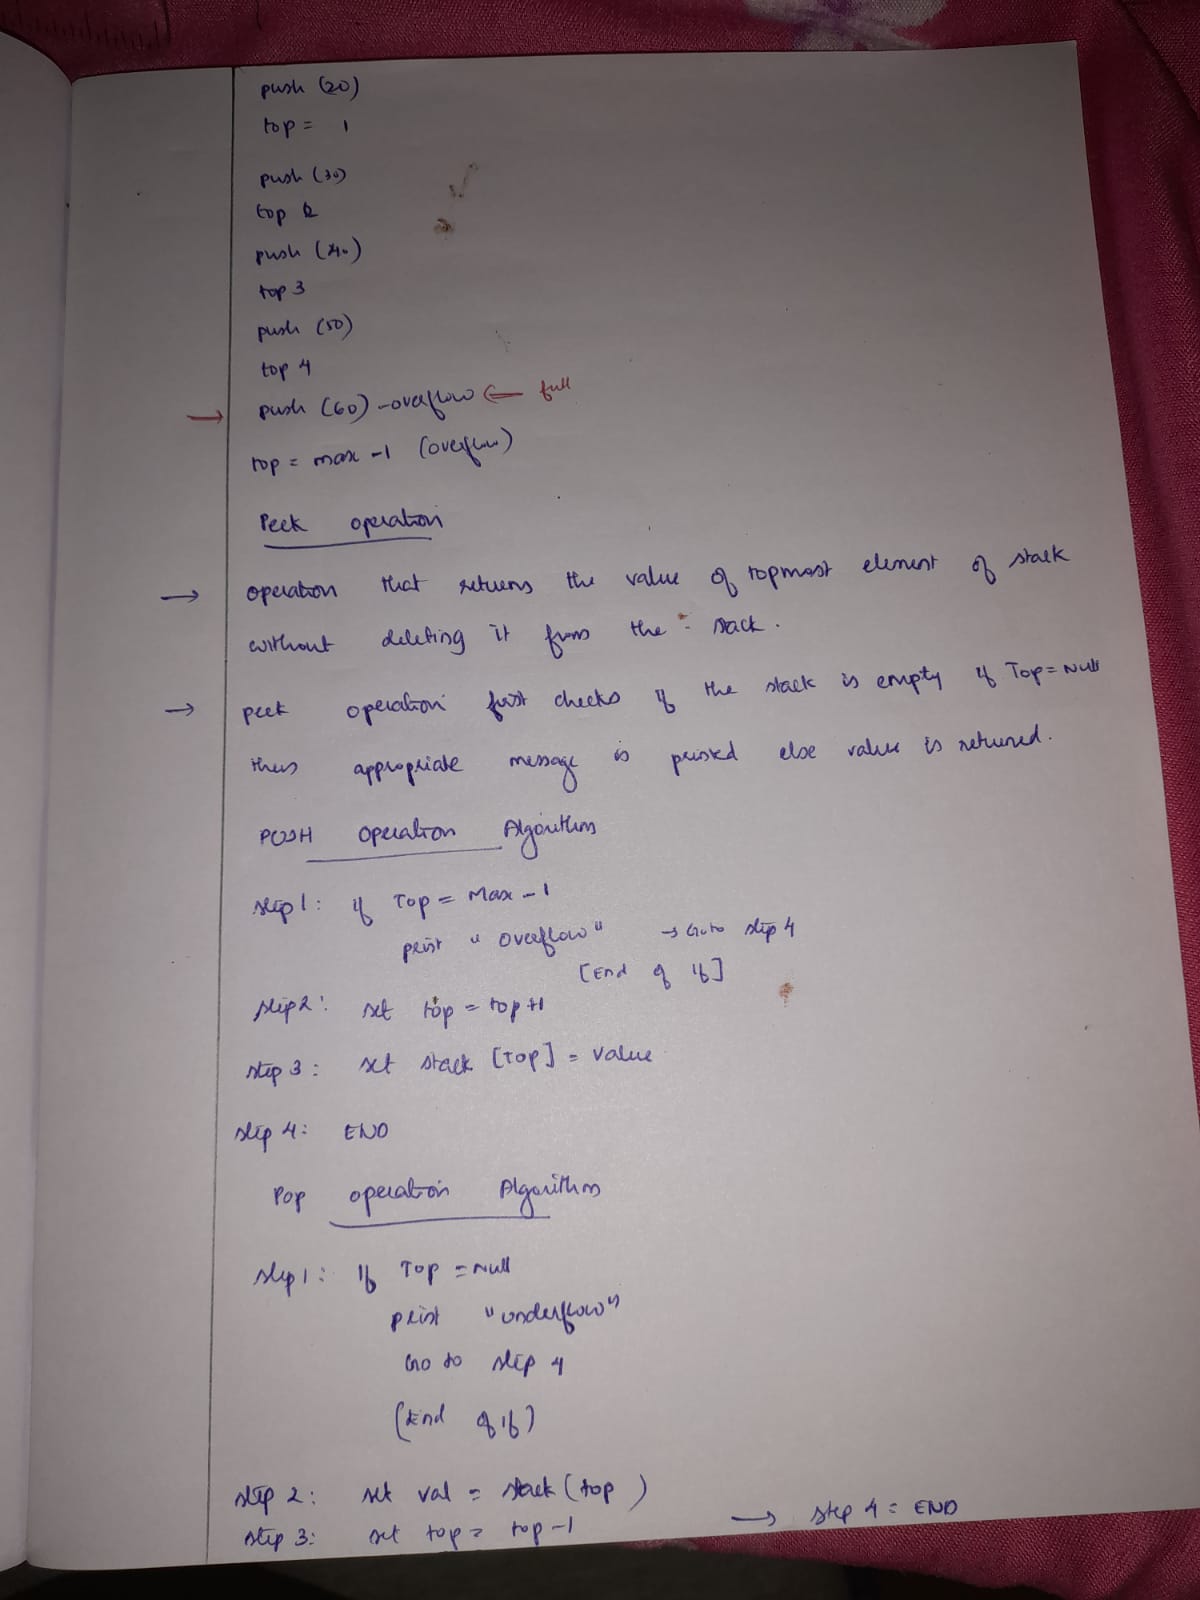 push (20)
top = 1
push (30)
top 2
push (40)
top 3
push (50)
top 4
→ push (60) - overflow ← full
top = max -1 (overflow)
Peek operation
→ operation that returns the value of topmost element of stack
without deleting it from the stack.
→ peek operation first checks if the stack is empty if Top = Null
then appropriate message is printed else value is returned.
PUSH operation Algorithm
step 1: if Top = Max - 1
print "overflow" → Goto step 4
[End of if]
step 2: set top = top+1
step 3: set stack [Top] = value
step 4: END
Pop operation Algorithm
step 1: If Top = Null
print "underflow"
Go to step 4
(End of if)
step 2: set val = stack (top)
step 3: set top = top -1 → step 4 = END